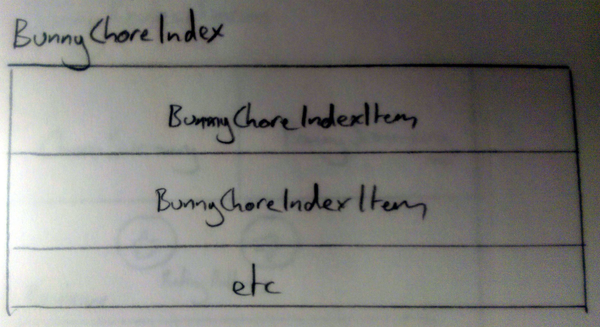 BunnyChoreIndex
BunnyChoreIndexItem
BunnyChoreIndexItem
etc